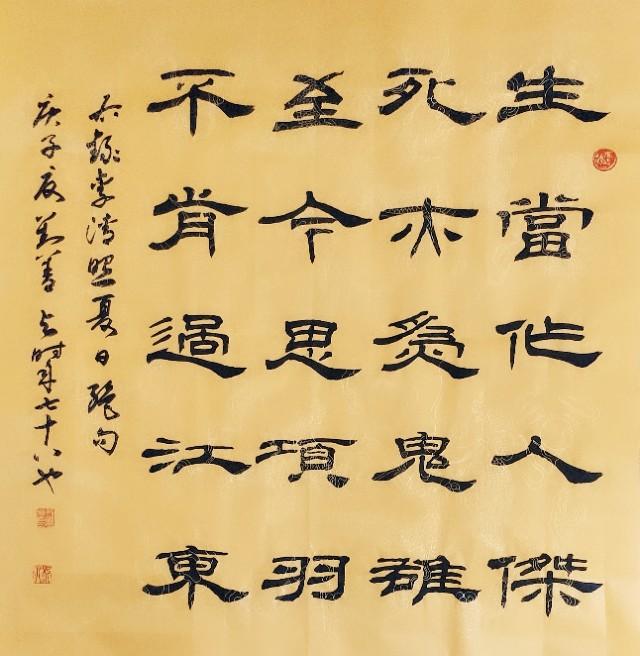 生當作人傑
死亦為鬼雄
至今思項羽
不肯過江東
右錄李清照夏日絕句
庚子夏善时年七十八也